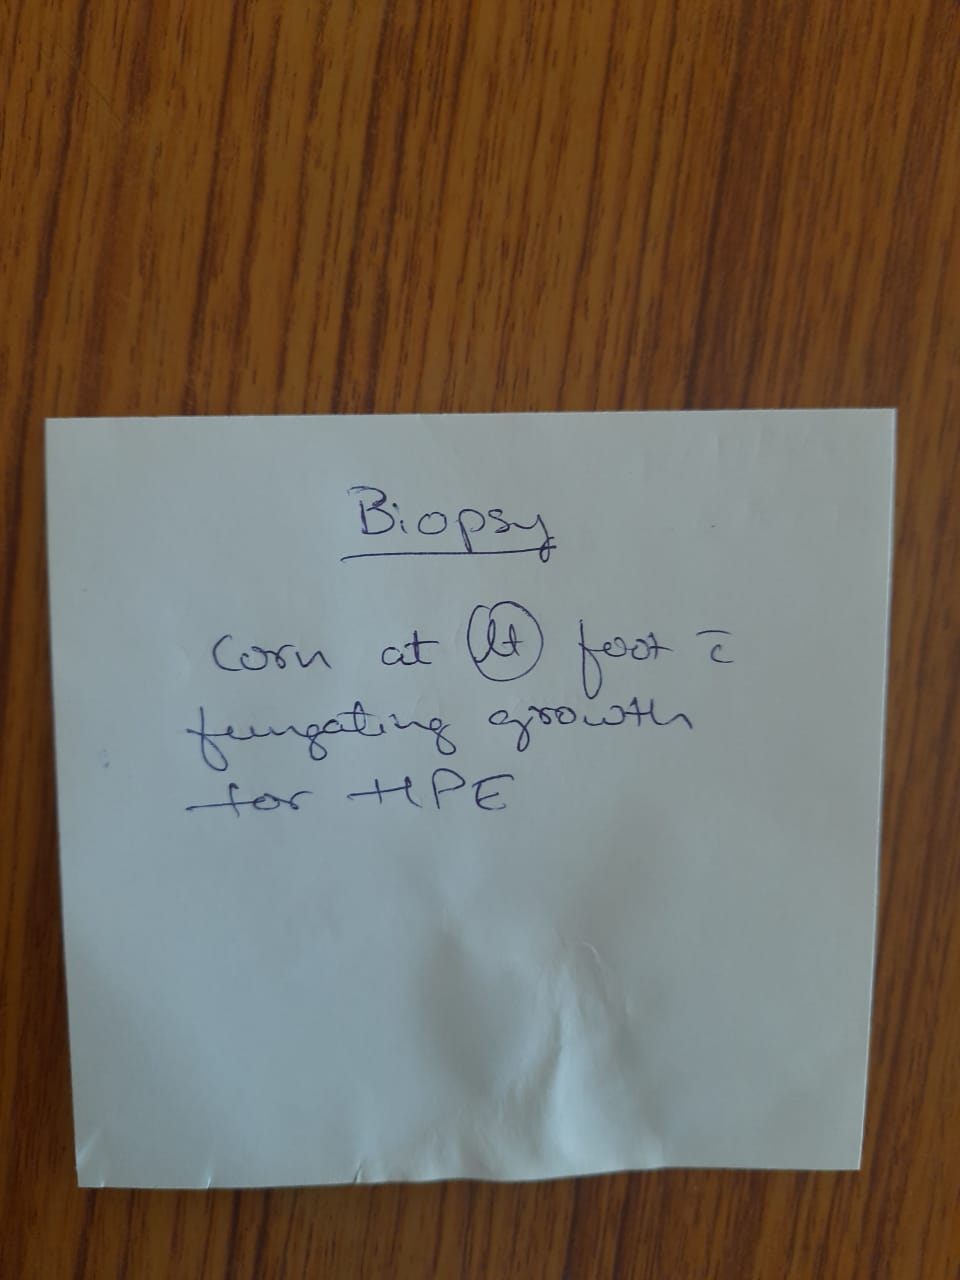 Biopsy
Corn at lt foot c̄
fungating growth
for HPE